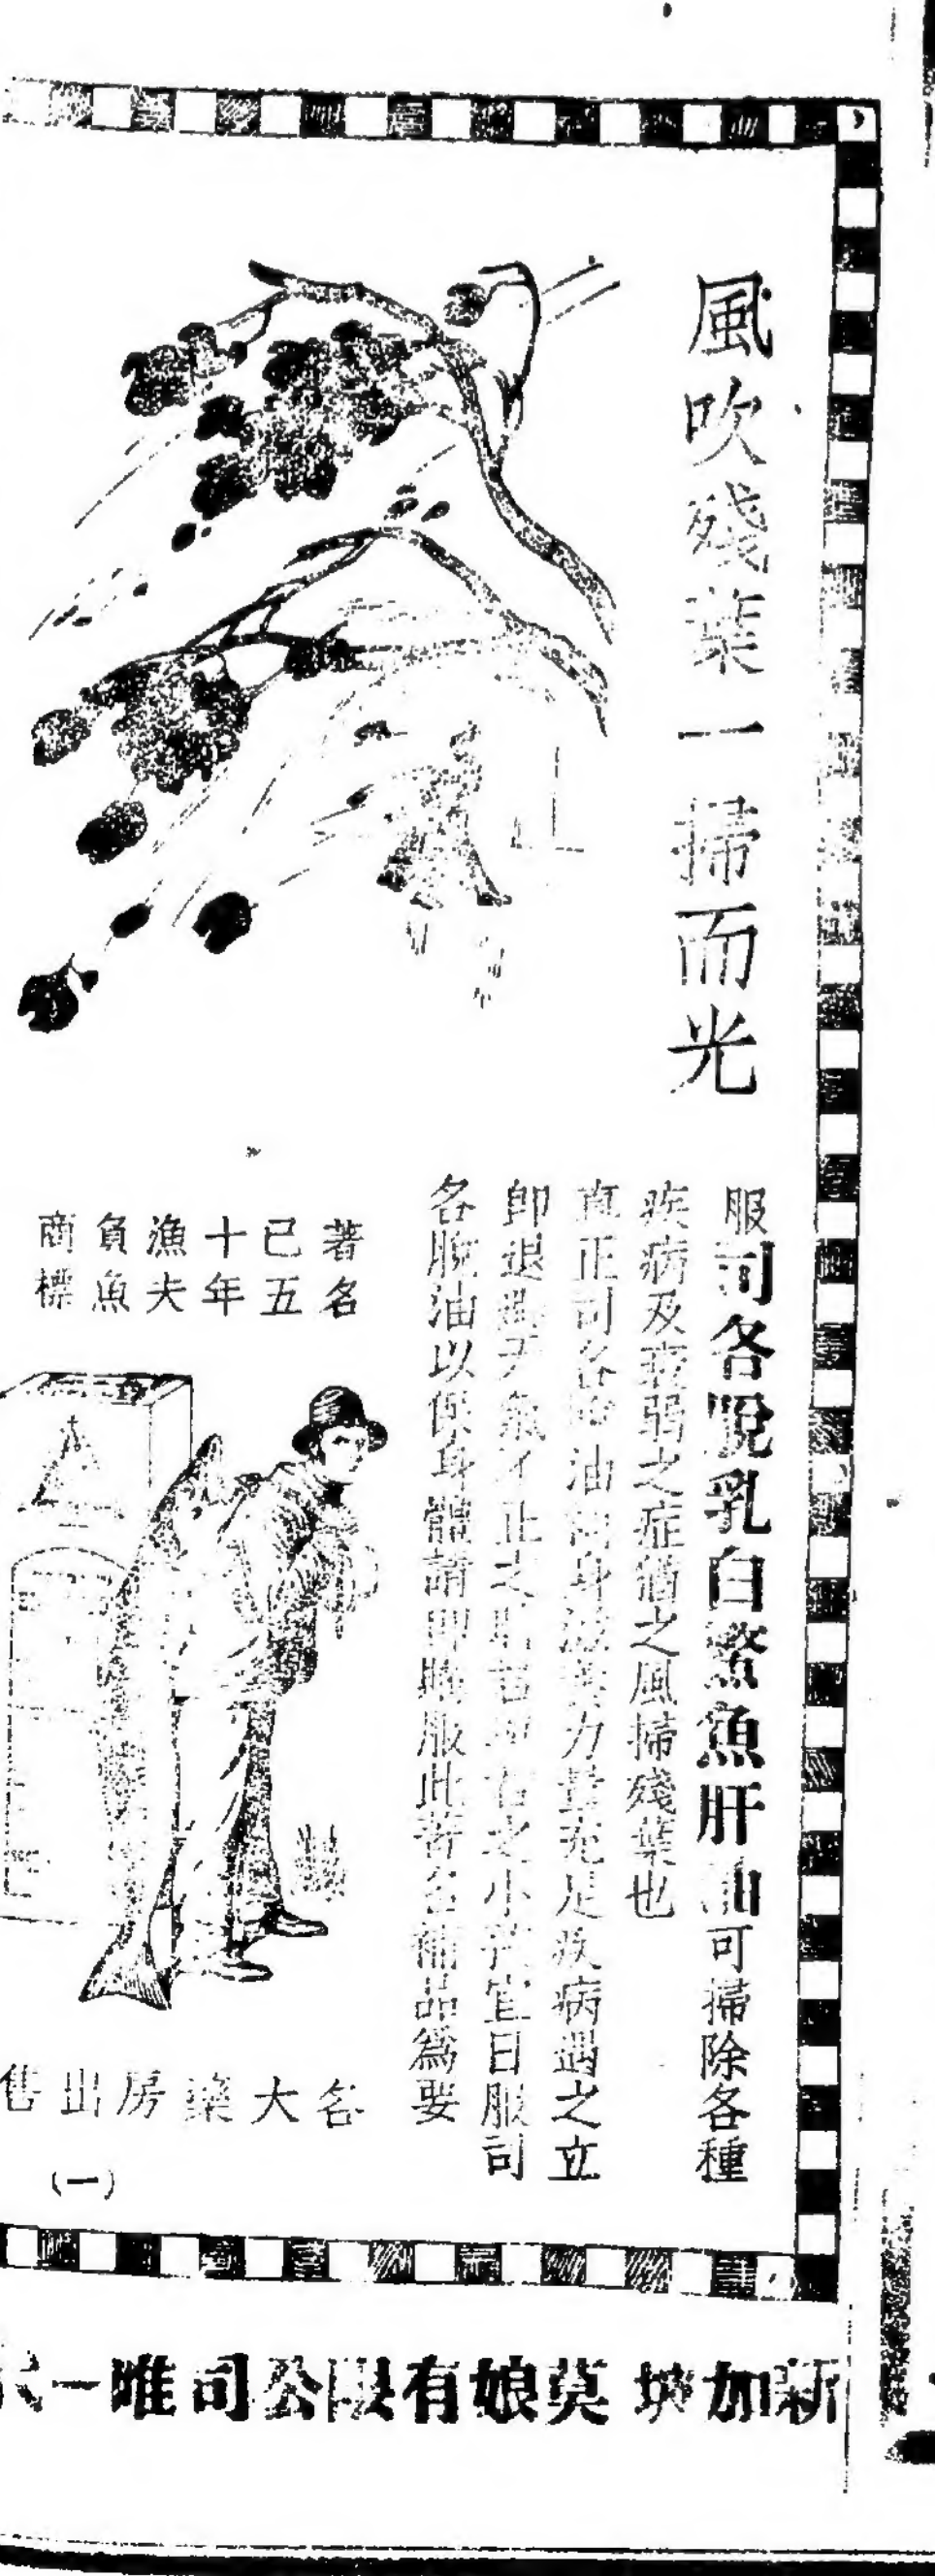 風吹殘葉一掃而光
服司各脫乳白鰵魚肝油可掃除各種
疾病及衰弱之症猶之風掃殘葉也
真正司各脫油內身滋養力量充足疾病遇之立
卽退 之小孩宜日服司
各脫油以保身體請卽購服此著名補品爲要
著名
已五
十年
漁夫
負魚
商標
各大藥房出售
(一)
新加坡 莫娘有限公司唯一